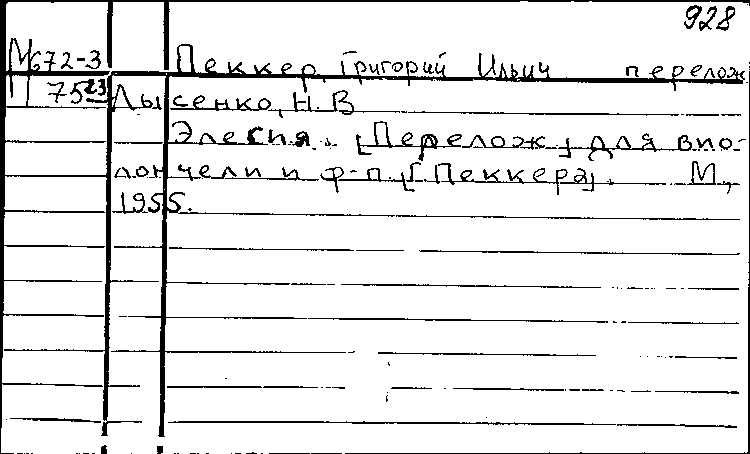 928
М672-3 Пеккер, Григорий Ильич перелож
П 7523 Лысенко, Н. В
Элегия. [Перелож] для вио-
лончели и ф-п. [Г Пеккера]. М.,
1955.